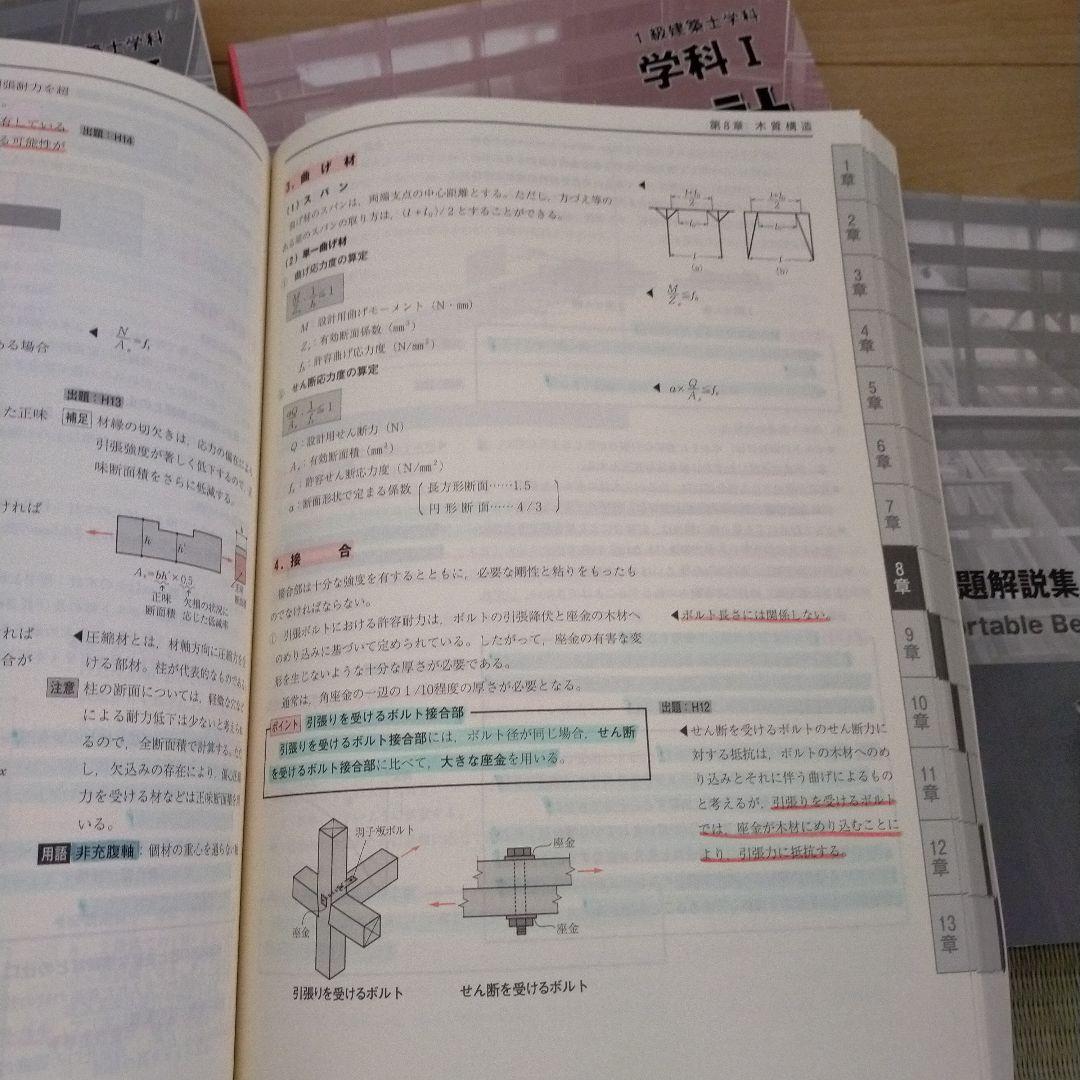 1級建築士学科
学科 I
建築士学科
張耐力を超
有している
る可能性が
出題：H14
N
A
≦f
ある場合
出題：H13
た正味
補足 材縁の切欠きは，応力の偏在によ
引張強度が著しく低下するので，
味断面積をさらに低減する。
ければ
h h'
A = bh' × 0.5
正味 欠損の状況に
断面積 応じた低減率
れば
合が
◀圧縮材とは，材軸方向に圧縮力を
ける部材。柱が代表的なものである
注意 柱の断面については，軽微な穴など
による耐力低下は少ないと考えら
るので，全断面積で計算する。
し，欠込みの存在により，
力を受ける材などは正味断面積を用
いる。
x
用語 非充腹軸：個材の重心を通らない軸
第8章 木質構造
3．曲げ材
(1) スパン
曲げ材のスパンは，両端支点の中心距離とする。ただし，方づえ等の
ある梁のスパンの取り方は，(l＋l₀)/2とすることができる。
◀
l+l₀
2
l₀
l
(a)
l+l₀
2
l₀
l
(b)
(2) 単一曲げ材
① 曲げ応力度の算定
M/Zₑ・1/f_b≦1
◀ M/Zₑ≦f_b
M：設計用曲げモーメント（N・mm）
Zₑ：有効断面係数（mm³）
f_b：許容曲げ応力度（N/mm²）
② せん断応力度の算定
αQ/Aₑ・1/fₛ≦1
◀ α×Q/Aₑ≦fₛ
Q：設計用せん断力（N）
Aₑ：有効断面積（mm²）
fₛ：許容せん断応力度（N/mm²）
α：断面形状で定まる係数（長方形断面……1.5
円形断面……4/3）
4．接 合
接合部は十分な強度を有するとともに，必要な剛性と粘りをもったも
のでなければならない。
① 引張ボルトにおける許容耐力は，ボルトの引張降伏と座金の木材へ
のめり込みに基づいて定められている。したがって，座金の有害な変
形を生じないような十分な厚さが必要である。
通常は，角座金の一辺の1/10程度の厚さが必要となる。
◀ボルト長さには関係しない。
ポイント 引張りを受けるボルト接合部
引張りを受けるボルト接合部には，ボルト径が同じ場合，せん断
を受けるボルト接合部に比べて，大きな座金を用いる。
出題：H12
◀せん断を受けるボルトのせん断力に
対する抵抗は，ボルトの木材へのめ
り込みとそれに伴う曲げによるもの
と考えるが，引張りを受けるボルト
では，座金が木材にめり込むことに
より，引張力に抵抗する。
羽子板ボルト
座金
引張りを受けるボルト
座金
座金
せん断を受けるボルト
1章
2章
3章
4章
5章
6章
7章
8章
9章
10章
11章
12章
13章
題解説集
ortable Be